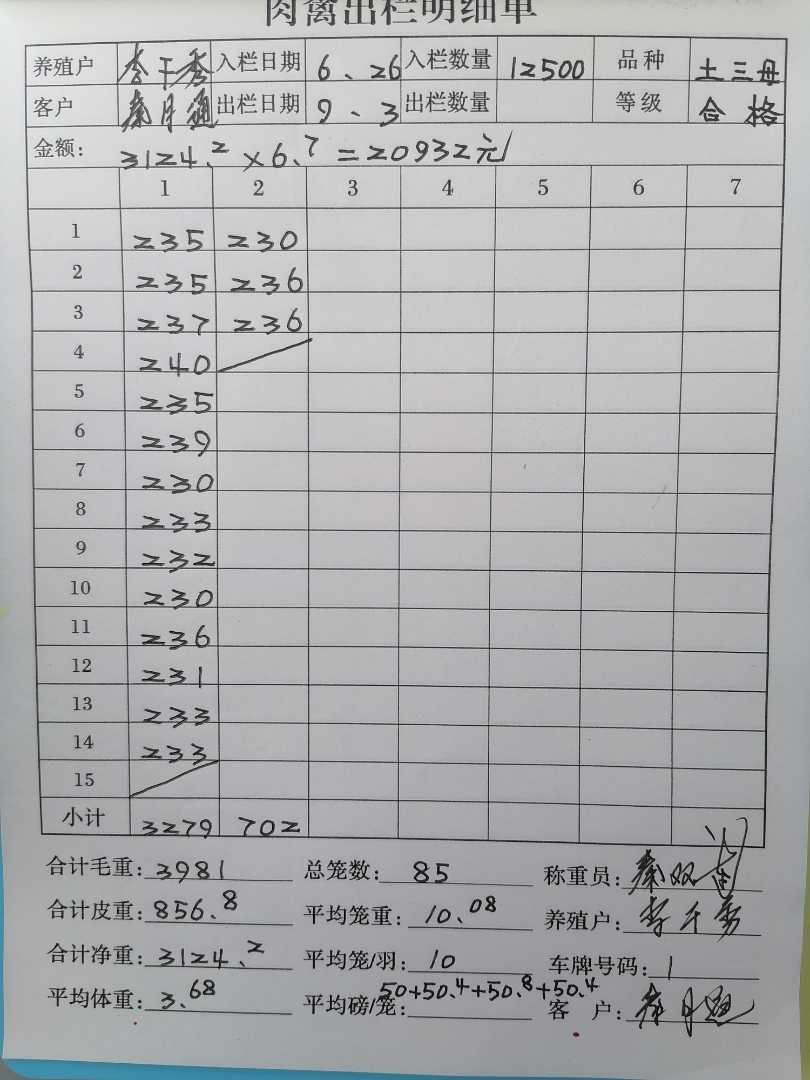 肉禽出栏明细单
养殖户 李千秀 入栏日期 6、26 入栏数量 12500 品种 土三母
客户 秦月通 出栏日期 9、3 出栏数量 等级 合格
金额: 3124.2×6.7=20932元
1 2 3 4 5 6 7
1 235 230
2 235 236
3 237 236
4 240
5 235
6 239
7 230
8 233
9 232
10 230
11 236
12 231
13 233
14 233
15
小计 3279 702
合计毛重: 3981 总笼数: 85 称重员: 秦双
合计皮重: 856.8 平均笼重: 10.08 养殖户: 李千秀
合计净重: 3124.2 平均笼/羽: 10 车牌号码: 1
平均体重: 3.68 平均磅/笼: 50+50.4+50.8+50.4 客 户: 秦月通